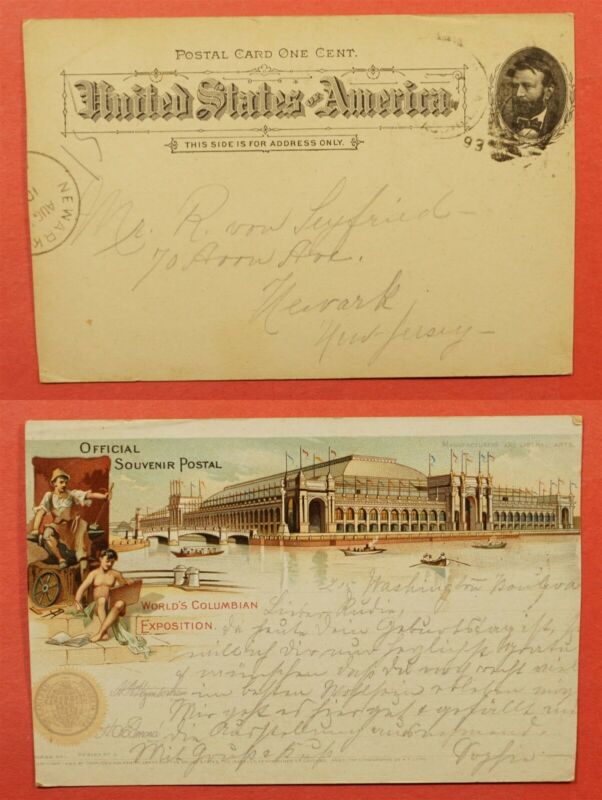 POSTAL CARD ONE CENT.
United States of America.
THIS SIDE IS FOR ADDRESS ONLY.
93
NEWARK
AUG
10
Mr. R. von Seyfried
70 Avon Ave.
Newark
New Jersey
OFFICIAL
SOUVENIR POSTAL
MANUFACTURES AND LIBERAL ARTS.
WORLD'S COLUMBIAN
EXPOSITION.
Washington Bouleva
Lieber Rudie,
da heute dein Geburtstag ist,
will ich dir nur herzlichst gratu
wünschen daß du noch recht viel
im besten Wohlsein erleben mög
Mir geht es hier gut & gefällt mir
die Ausstellung ausnehmend
Mit Gruß & Kuß Sophie